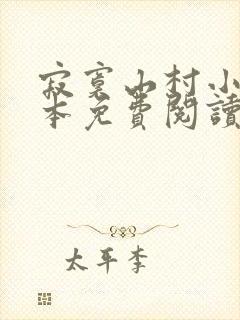 寂寞山村小
本免費閱讀
太平李